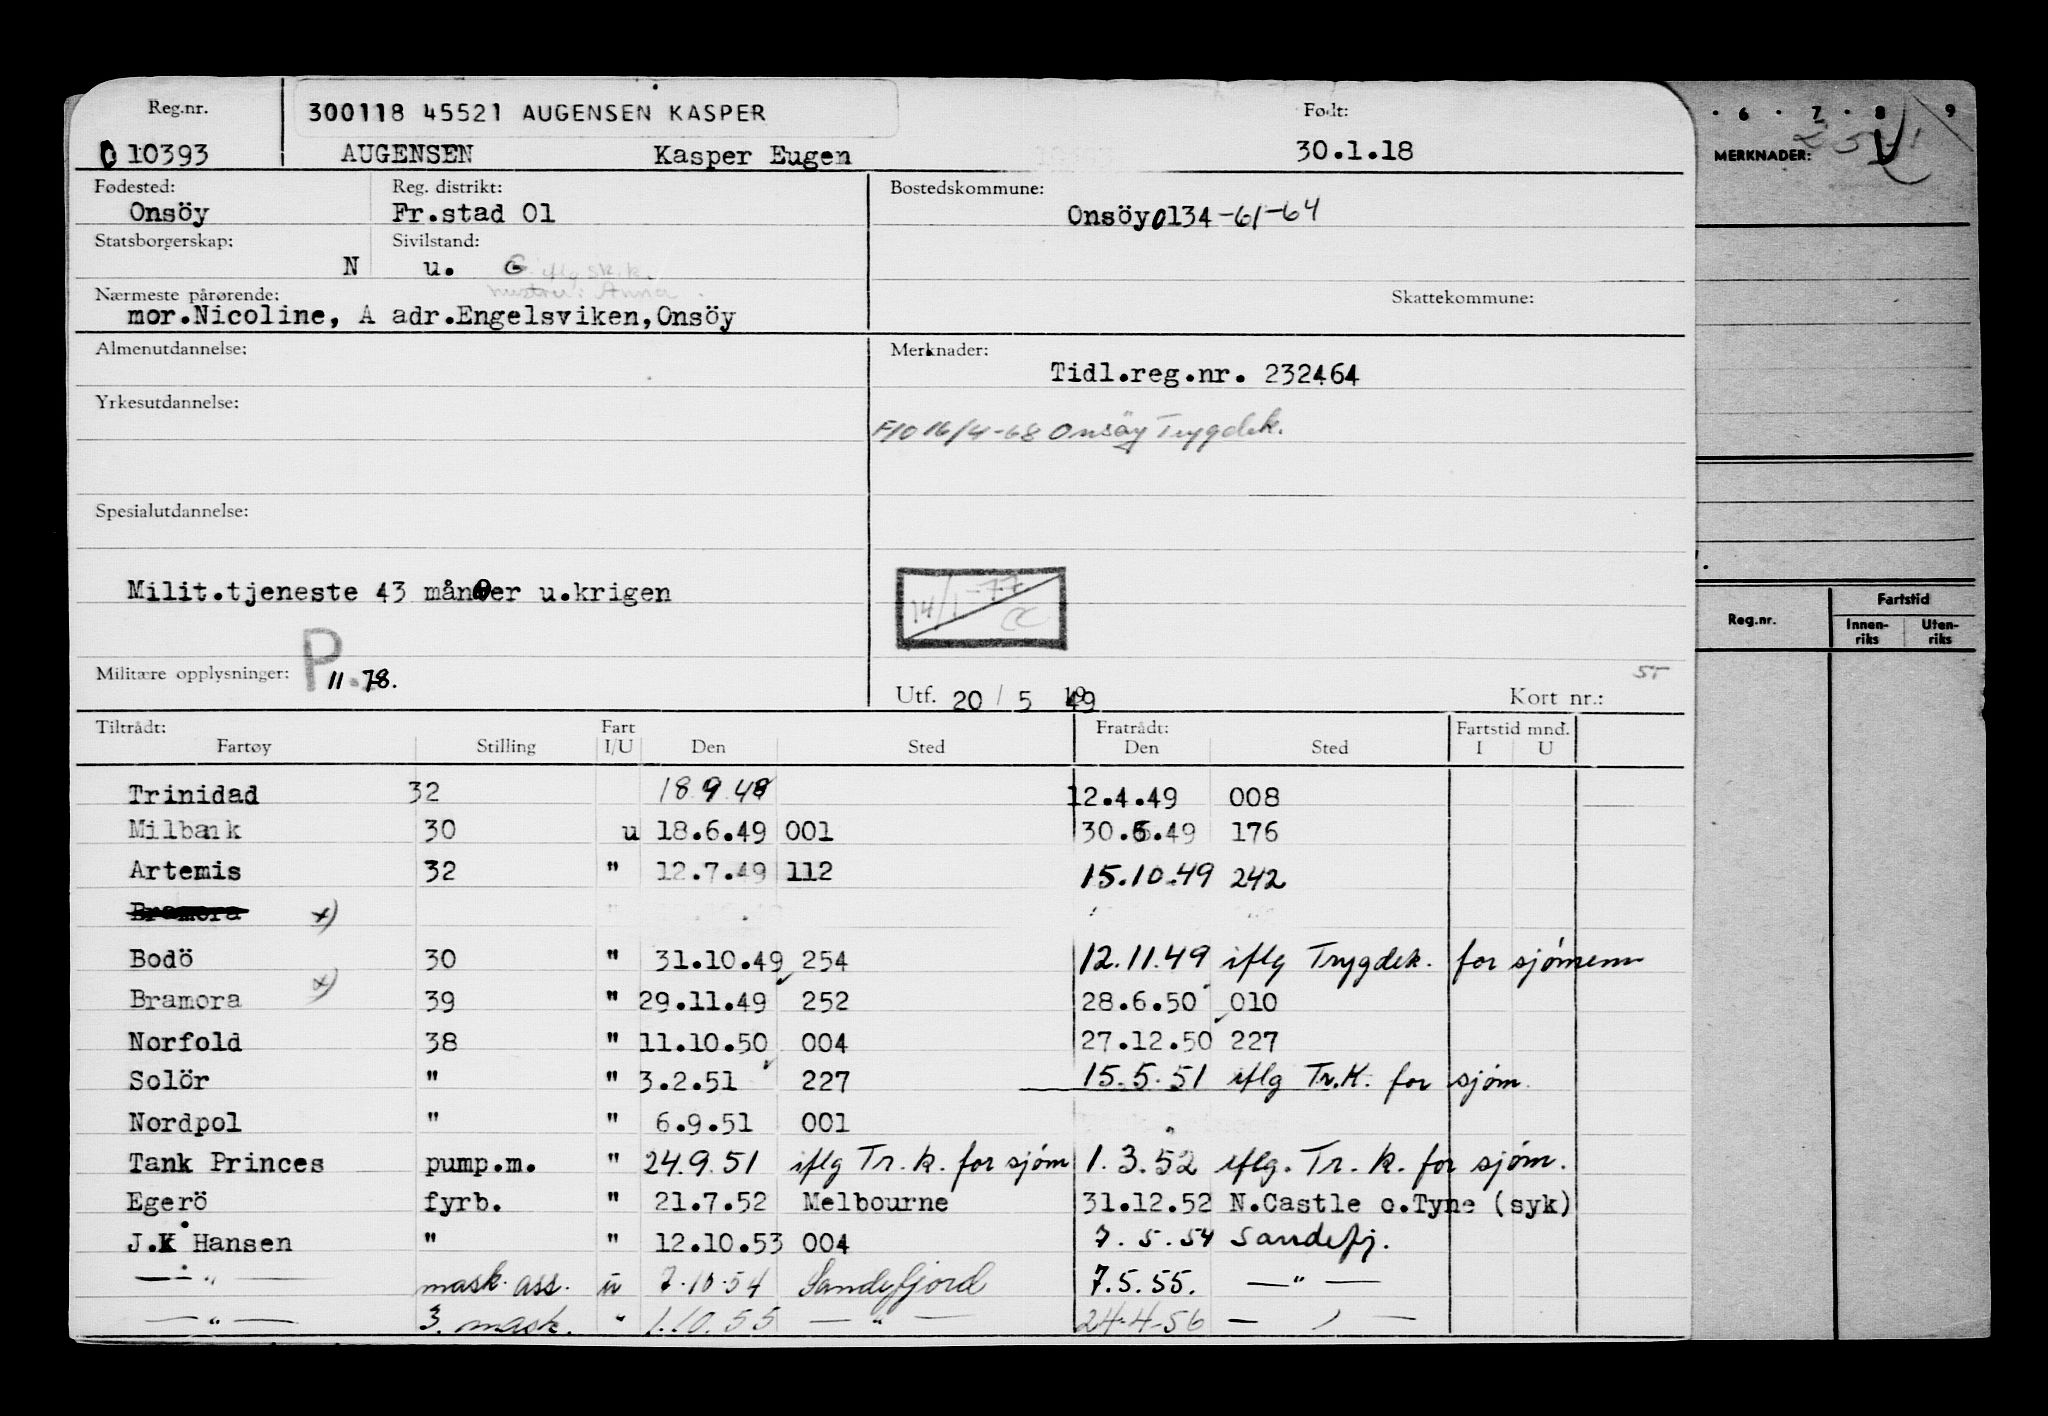 Reg.nr. 300118 45521 AUGENSEN KASPER Født:
010393 AUGENSEN Kasper Eugen 30.1.18
Fødested: Reg. distrikt: Bostedskommune:
Onsöy Fr.stad 01 Onsöy 0134-61-64
Statsborgerskap: Sivilstand:
N u. G iflg sk.k.
hustru: Anna
Nærmeste pårørende: Skattekommune:
mor.Nicoline, A adr.Engelsviken,Onsöy
Almenutdannelse: Merknader:
Tidl.reg.nr. 232464
Yrkesutdannelse:
F/O 16/4-68 Onsöy Trygdek.
Spesialutdannelse:
Milit.tjeneste 43 måneder u.krigen
14/1-77
P
Militære opplysninger: 11.78.
Utf. 20 / 5 1949 Kort nr.: 5T
Tiltrådt: Fart Fratrådt: Fartstid mnd.
Fartøy Stilling I/U Den Sted Den Sted I U
Trinidad 32 18.9.48 12.4.49 008
Milbank 30 u 18.6.49 001 30.6.49 176
Artemis 32 " 12.7.49 112 15.10.49 242
Bramora x)
Bodö 30 " 31.10.49 254 12.11.49 iflg Trygdek. for sjömenn
Bramora x) 39 " 29.11.49 252 28.6.50 010
Norfold 38 " 11.10.50 004 27.12.50 227
Solör " " 3.2.51 227 15.5.51 iflg Tr.K. for sjöm.
Nordpol " " 6.9.51 001
Tank Princes pump.m. " 24.9.51 iflg Tr.k. for sjöm 1.3.52 iflg. Tr.k. for sjöm.
Egerö fyrb. " 21.7.52 Melbourne 31.12.52 N.Castle o.Tyne (syk)
J.K Hansen " " 12.10.53 004 7.5.54 Sandefj.
— " — mask.ass. u 7.10.54 Sandefjord 7.5.55. — " —
— " — 3. mask. " 1.10.55 — " — 24.4-56 — " —
· 6 · 7 · 8 9
MERKNADER:
Reg.nr. Fartstid
Innenriks Utenriks